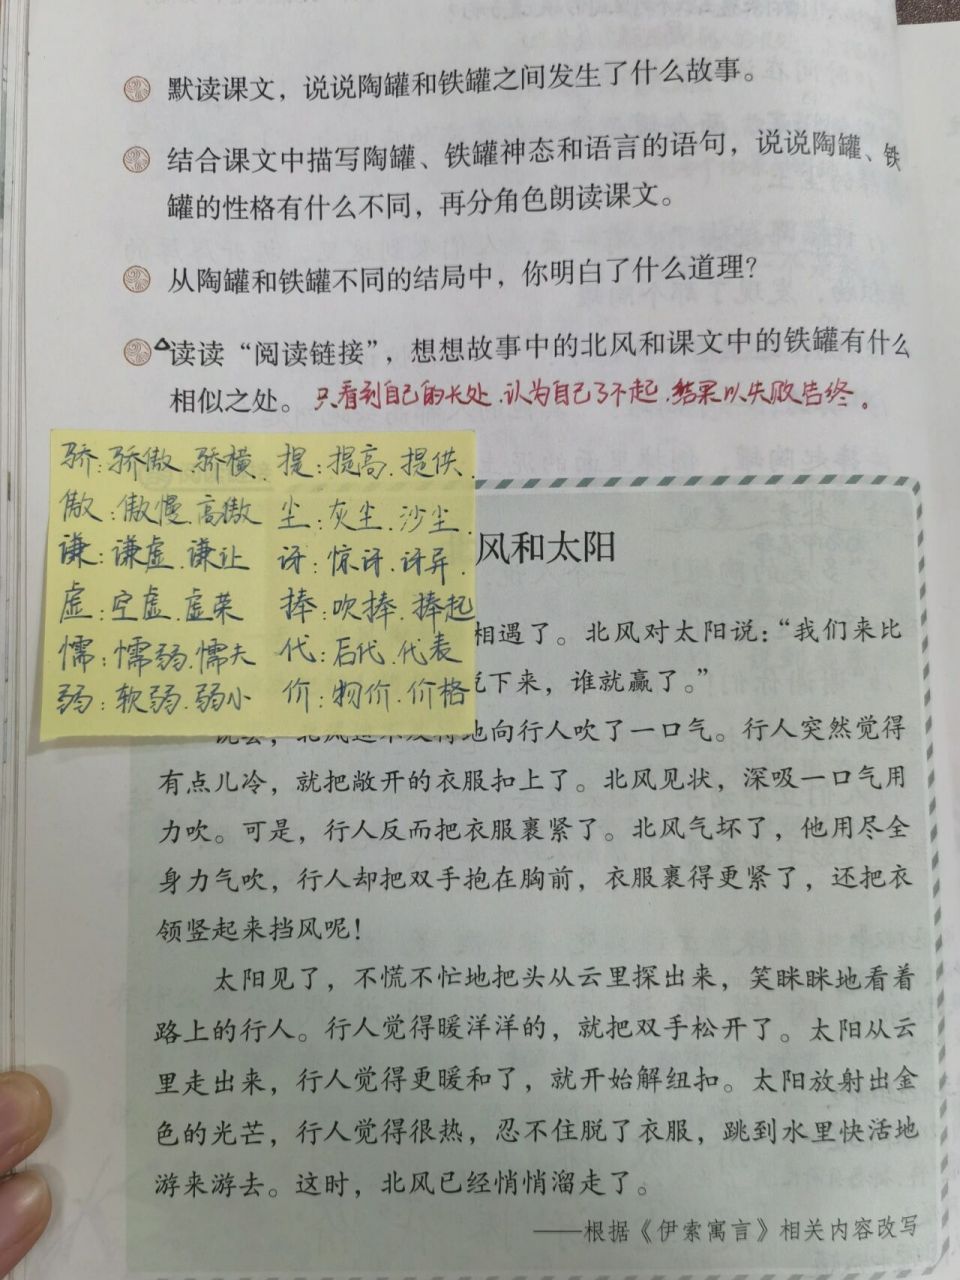 默读课文，说说陶罐和铁罐之间发生了什么故事。
结合课文中描写陶罐、铁罐神态和语言的语句，说说陶罐、铁
罐的性格有什么不同，再分角色朗读课文。
从陶罐和铁罐不同的结局中，你明白了什么道理？
读读“阅读链接”，想想故事中的北风和课文中的铁罐有什么
相似之处。只看到自己的长处、认为自己了不起，结果以失败告终。
骄：骄傲、骄横 提：提高、提供
傲：傲慢、高傲 尘：灰尘、沙尘
谦：谦虚、谦让 讶：惊讶、讶异
虚：空虚、虚荣 捧：吹捧、捧起
懦：懦弱、懦夫 代：后代、代表
弱：软弱、弱小 价：物价、价格
风和太阳
相遇了。北风对太阳说：“我们来比
下来，谁就赢了。”
地向行人吹了一口气。行人突然觉得
有点儿冷，就把敞开的衣服扣上了。北风见状，深吸一口气用
力吹。可是，行人反而把衣服裹紧了。北风气坏了，他用尽全
身力气吹，行人却把双手抱在胸前，衣服裹得更紧了，还把衣
领竖起来挡风呢！
太阳见了，不慌不忙地把头从云里探出来，笑眯眯地看着
路上的行人。行人觉得暖洋洋的，就把双手松开了。太阳从云
里走出来，行人觉得更暖和了，就开始解纽扣。太阳放射出金
色的光芒，行人觉得很热，忍不住脱了衣服，跳到水里快活地
游来游去。这时，北风已经悄悄溜走了。
——根据《伊索寓言》相关内容改写